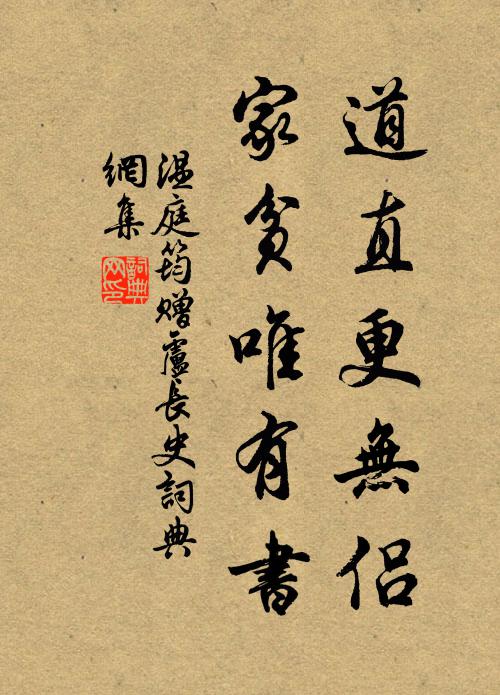 道直更無侶
家貧唯有書
溫庭筠贈盧長史詞典
網集
詞典
网印